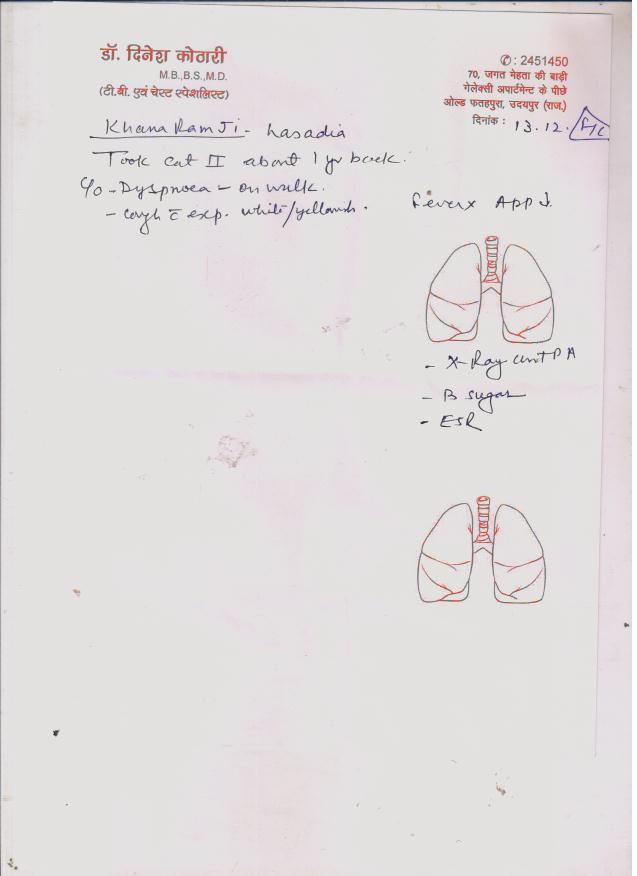 डॉ. दिनेश कोठारी
M.B.,B.S.,M.D.
(टी.बी. एवं चेस्ट स्पेशलिस्ट)
✆: 2451450
70, जगत मेहता की बाड़ी
गेलेक्सी अपार्टमेन्ट के पीछे
ओल्ड फतहपुरा, उदयपुर (राज.)
दिनांक : 13.12.
Khana Ram Ji - Lasadia
Took cat II about 1 yr back.
C/o - Dyspnoea - on walk.
- cough c̄ exp. white/yellowish.
fever x App ↓.
- X-Ray chest PA
- B sugar
- ESR